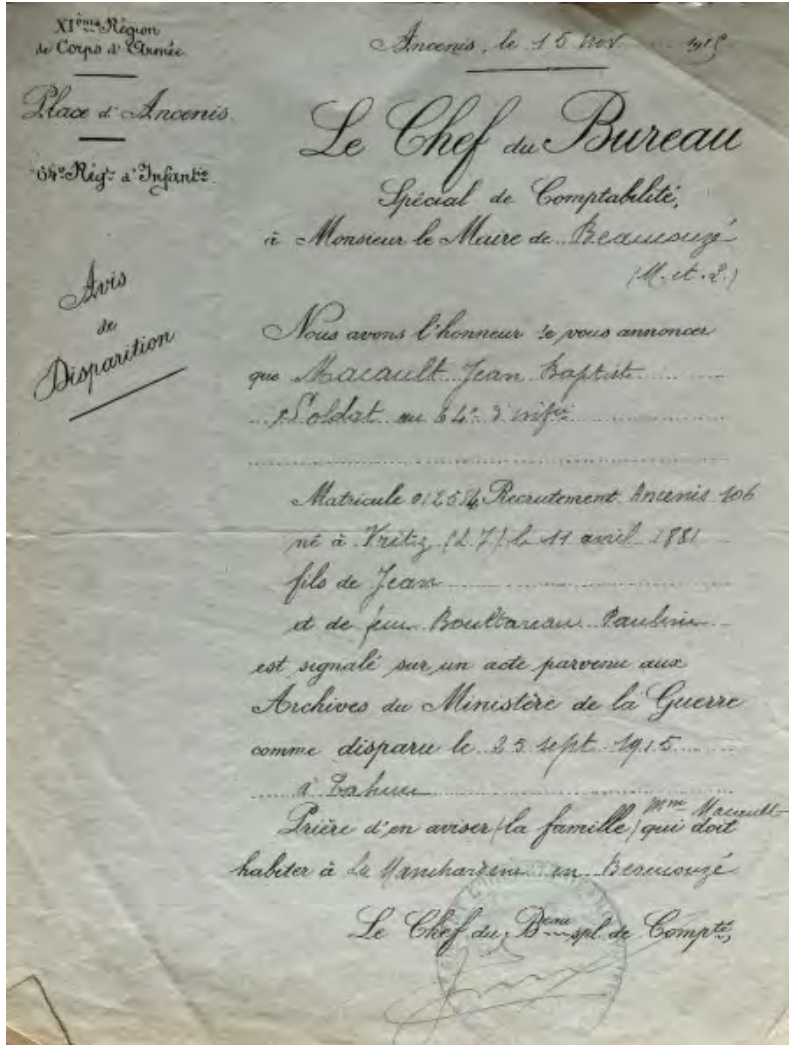 XIème Région
de Corps d'Armée
Place d'Ancenis.
64e Régt d'Infantie
Avis
de
Disparition
Ancenis, le 15 nov 1915
Le Chef du Bureau
Spécial de Comptabilité,
à Monsieur le Maire de Beaucouzé
(M. et. L.)
Nous avons l'honneur de vous annoncer
que Macault Jean Baptiste
Soldat au 64e d'infie
Matricule 01254 Recrutement Ancenis 106
né à Vritz (L.I) le 11 avril 1881
fils de Jean
et de feue Pauline
est signalé sur un acte parvenu aux
Archives du Ministère de la Guerre
comme disparu le 25 sept 1915
à Tahure
Prière d'en aviser (la famille) Mme Macault qui doit
habiter à la en Beaucouzé
Le Chef du Beau spl. de Compté,